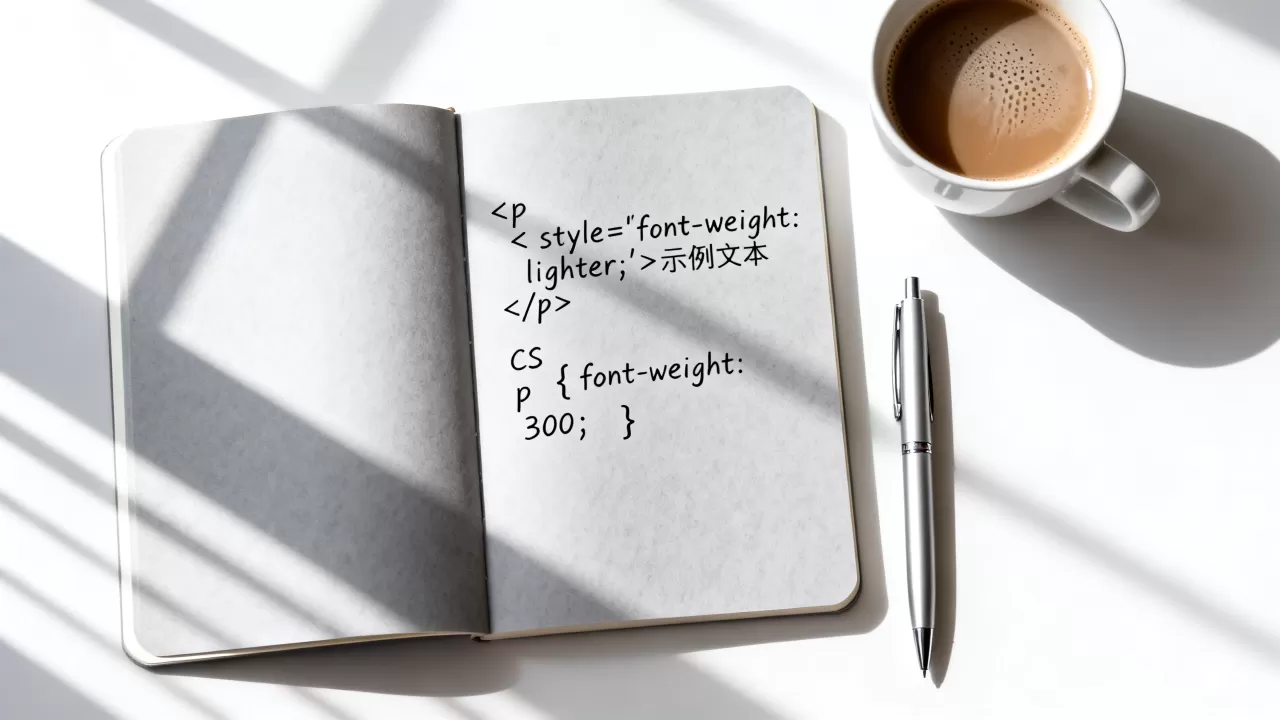 <p
< style="font-weight:
lighter;'>示例文本
</p>
CS
p { font-weight:
300; }